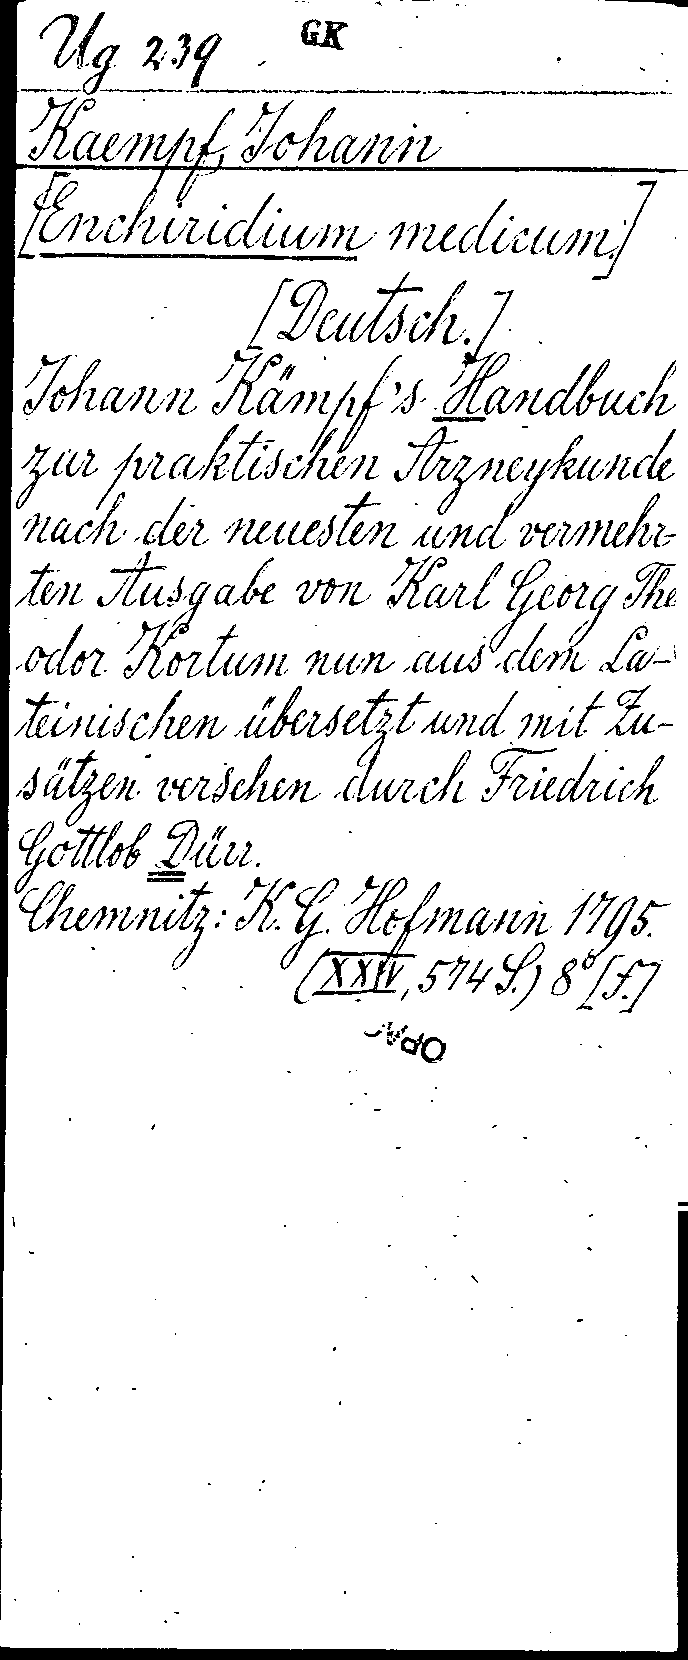 Ug 239 GK
Kaempf, Johann
[Enchiridium medicum.]
[Deutsch.]
Johann Kämpf's Handbuch
zur praktischen Arzneykunde
nach der neuesten und vermehr-
ten Ausgabe von Karl Georg The
odor Kortum nun aus dem La-
teinischen übersetzt und mit Zu-
sätzen versehen durch Friedrich
Gottlob Dürr.
Chemnitz: K. G. Hofmann 1795.
(XXIV, 574 S.) 8° [f.]
OPAC